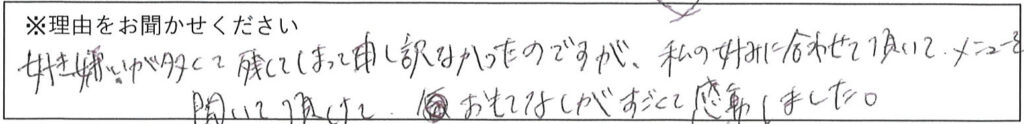 ※理由をお聞かせください
好き嫌いが多くて残してしまって申し訳なかったのですが、私の好みに合わせて頂いて、メニューを
聞いて頂けて、おもてなしがすごくて感動しました。